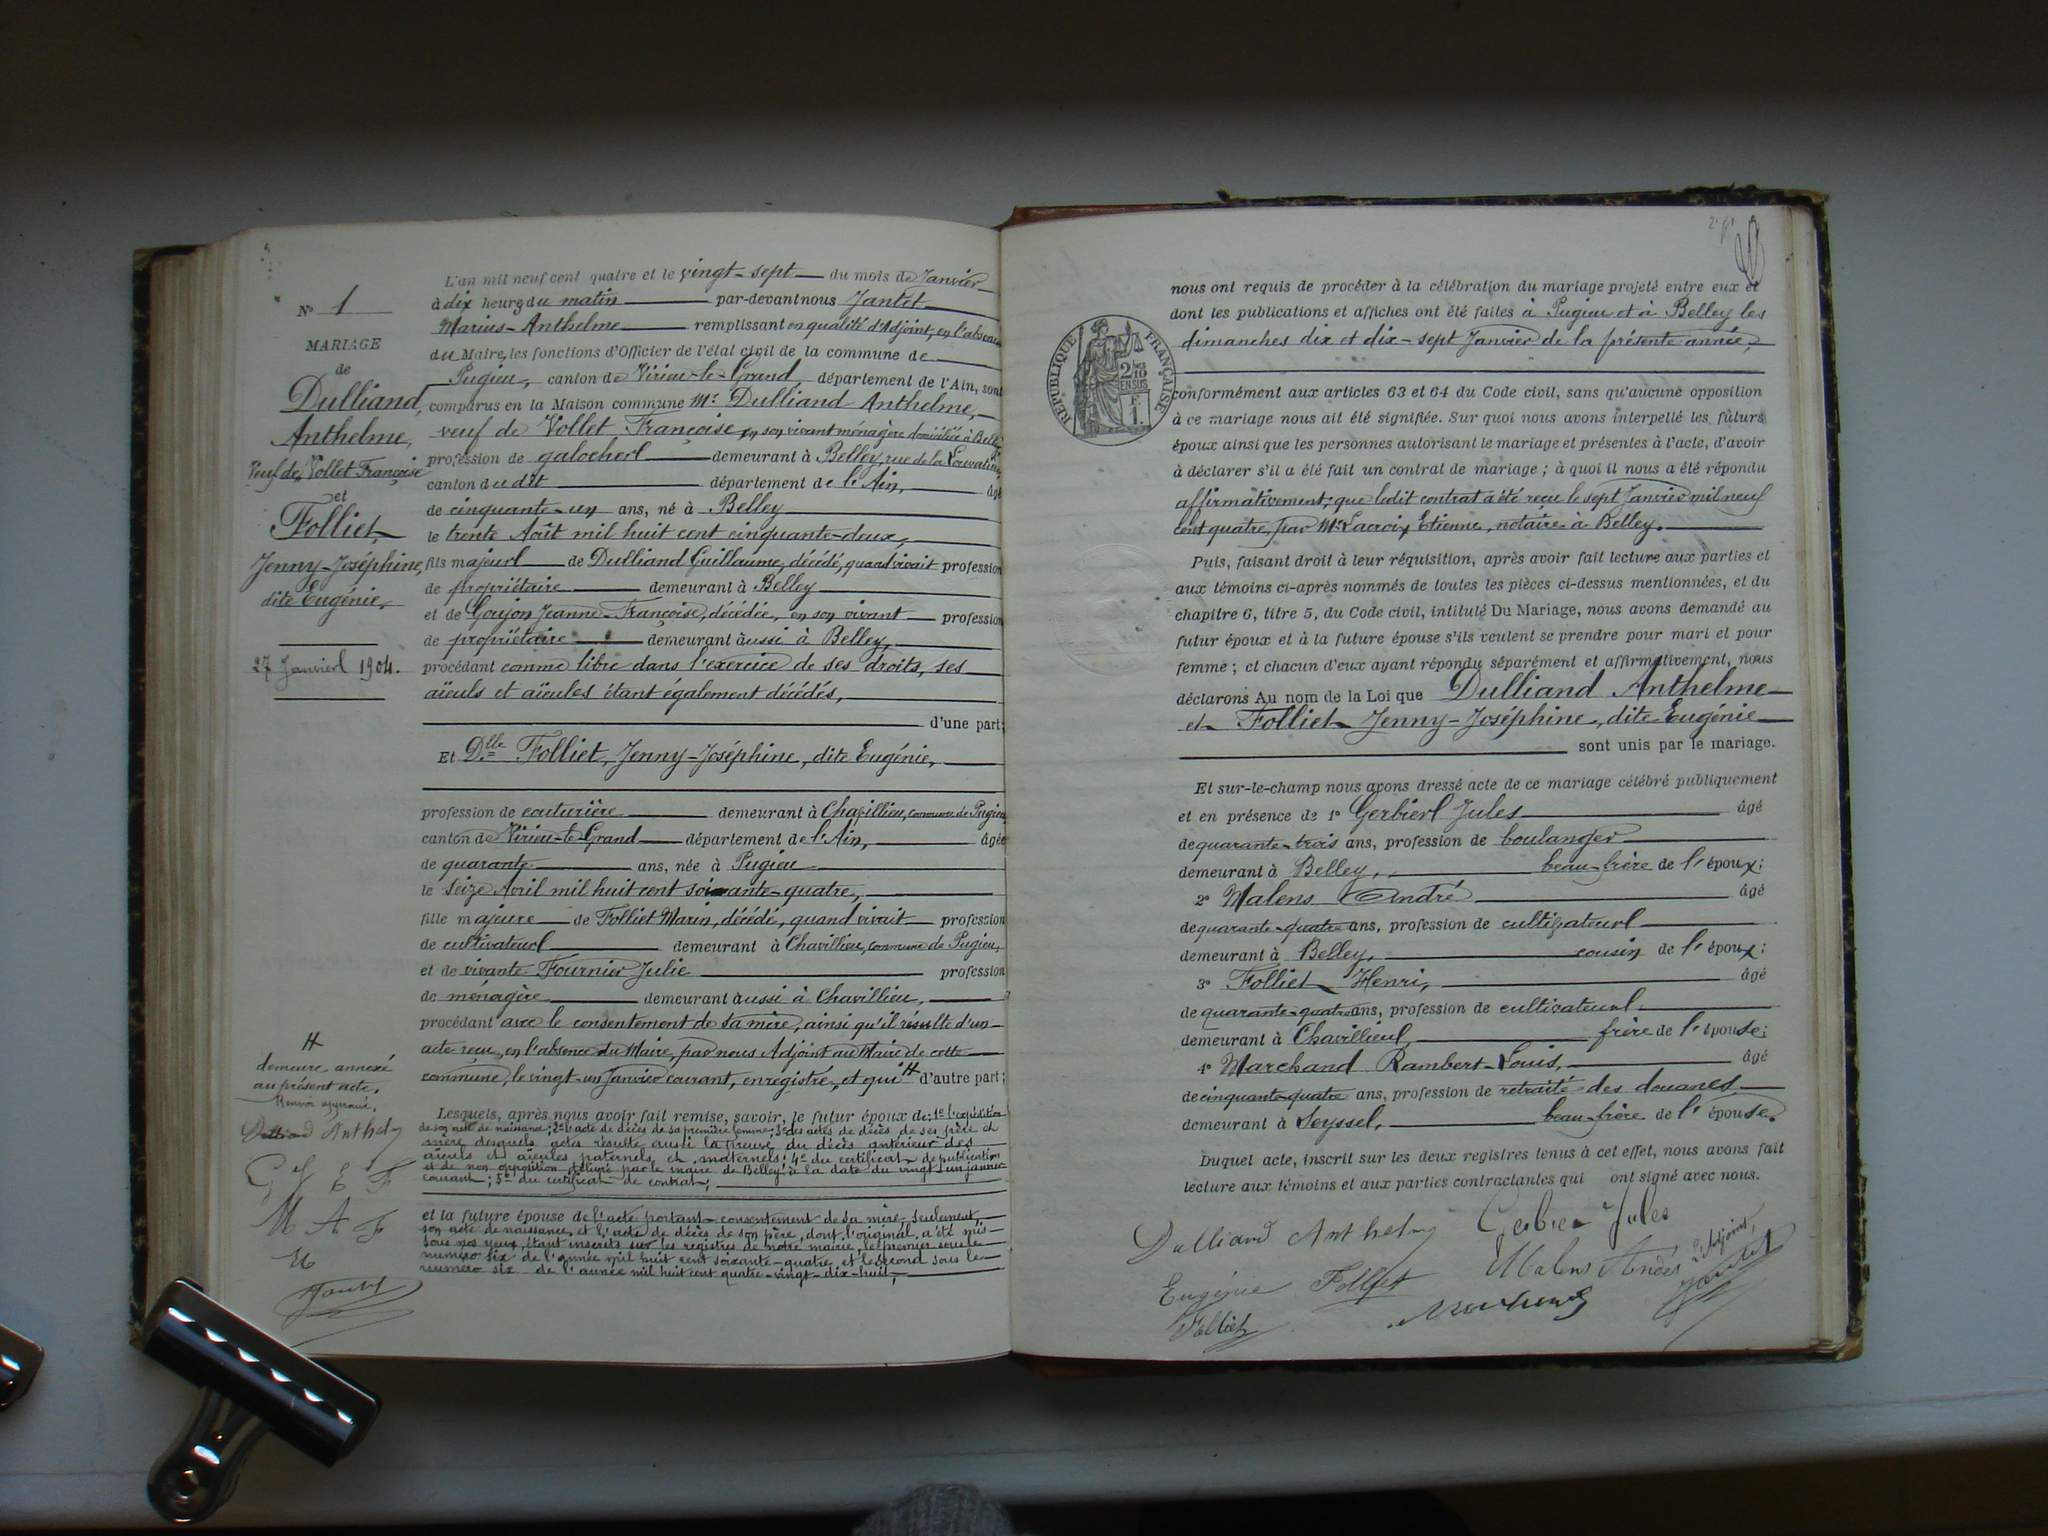 N° 1
MARIAGE
de
Dulliand,
Anthelme,
Veuf de Vollet Françoise
et
Folliet,
Jenny-Joséphine,
dite Eugénie.
27 Janvier 1904.
H
demeure annexé
au présent acte.
Renvoi approuvé.
Dulliand Anthelm
G J E F
M A F
M
Jantet
L'an mil neuf cent quatre et le vingt-sept du mois de Janvier
à dix heures du matin par-devant nous Jantet
Marius-Anthelme remplissant en qualité d'Adjoint, en l'absence
du Maire, les fonctions d'Officier de l'état civil de la commune de
Pugieu, canton de Virieu-le-Grand, département de l'Ain, sont
comparus en la Maison commune Mr Dulliand Anthelme,
veuf de Vollet Françoise en son vivant ménagère domiciliée à Belley
profession de galocherl demeurant à Belley, rue de la
canton du dit département de l'Ain, âgé
de cinquante-un ans, né à Belley
le trente Août mil huit cent cinquante-deux,
fils majeurl de Dulliand Guillaume, décédé, quand vivait profession
de propriétaire demeurant à Belley
et de Goujon Jeanne-Françoise, décédée, en son vivant profession
de propriétaire demeurant aussi à Belley,
procédant comme libre dans l'exercice de ses droits, ses
aïeuls et aïeules étant également décédés,
d'une part;
Et Dlle Folliet, Jenny-Joséphine, dite Eugénie,
profession de couturière demeurant à Chavillieu, commune de Pugieu
canton de Virieu-le-Grand département de l'Ain, âgée
de quarante ans, née à Pugieu
le seize Avril mil huit cent soixante-quatre,
fille majeure de Folliet Marin, décédé, quand vivait profession
de cultivateurl demeurant à Chavillieu, commune de Pugieu,
et de vivante Fournier Julie profession
de ménagère demeurant aussi à Chavillieu,
procédant avec le consentement de sa mère, ainsi qu'il résulte d'un
acte reçu, en l'absence du Maire, par nous Adjoint au Maire de cette
commune, le vingt-un Janvier courant, enregistré, et qui H d'autre part;
Lesquels, après nous avoir fait remise, savoir, le futur époux de: 1° l'expédition
de son acte de naissance; 2° l'acte de décès de sa première femme; 3° des actes de décès de ses père et
mère desquels actes résulte aussi la preuve du décès antérieur des
aïeuls et aïeules paternels et maternels; 4° du certificat de publication
et de non opposition délivré par le maire de Belley à la date du vingt un janvier
courant; 5° du certificat de contrat;
et la future épouse de l'acte portant consentement de sa mère seulement
son acte de naissance et l'acte de décès de son père, dont l'original a été mis
sous nos yeux, étant inscrits sur les registres de notre mairie, le premier sous le
numéro six de l'année mil huit cent soixante-quatre et le second sous le
numéro six de l'année mil huit cent quatre-vingt-dix-huit,
RÉPUBLIQUE FRANÇAISE
2/10
EN SUS
F.
1.
nous ont requis de procéder à la célébration du mariage projeté entre eux et
dont les publications et affiches ont été faites à Pugieu et à Belley les
dimanches dix et dix-sept Janvier de la présente année,
conformément aux articles 63 et 64 du Code civil, sans qu'aucune opposition
à ce mariage nous ait été signifiée. Sur quoi nous avons interpellé les futurs
époux ainsi que les personnes autorisant le mariage et présentes à l'acte, d'avoir
à déclarer s'il a été fait un contrat de mariage; à quoi il nous a été répondu
affirmativement; que ledit contrat a été reçu le sept Janvier mil neuf
cent quatre par Me Lacroix Etienne, notaire à Belley.
Puis, faisant droit à leur réquisition, après avoir fait lecture aux parties et
aux témoins ci-après nommés de toutes les pièces ci-dessus mentionnées, et du
chapitre 6, titre 5, du Code civil, intitulé Du Mariage, nous avons demandé au
futur époux et à la future épouse s'ils veulent se prendre pour mari et pour
femme; et chacun d'eux ayant répondu séparément et affirmativement, nous
déclarons Au nom de la Loi que Dulliand Anthelme
et Folliet Jenny-Joséphine, dite Eugénie
sont unis par le mariage.
Et sur-le-champ nous avons dressé acte de ce mariage célébré publiquement
et en présence de 1° Gerbierl Jules âgé
de quarante-trois ans, profession de boulanger
demeurant à Belley, beau-frère de l'époux;
2° Malens André âgé
de quarante-quatre ans, profession de cultivateurl
demeurant à Belley, cousin de l'époux;
3° Folliet Henri, âgé
de quarante-quatre ans, profession de cultivateurl
demeurant à Chavillieul, frère de l'épouse;
4° Marchand Rambert-Louis, âgé
de cinquante-quatre ans, profession de retraité des douanes
demeurant à Seyssel, beau-frère de l'épouse.
Duquel acte, inscrit sur les deux registres tenus à cet effet, nous avons fait
lecture aux témoins et aux parties contractantes qui ont signé avec nous.
Dulliand Anthelm Gerbier Jules
Eugénie Folliet Malens André L'Adjoint,
Folliet Marchand Jantet